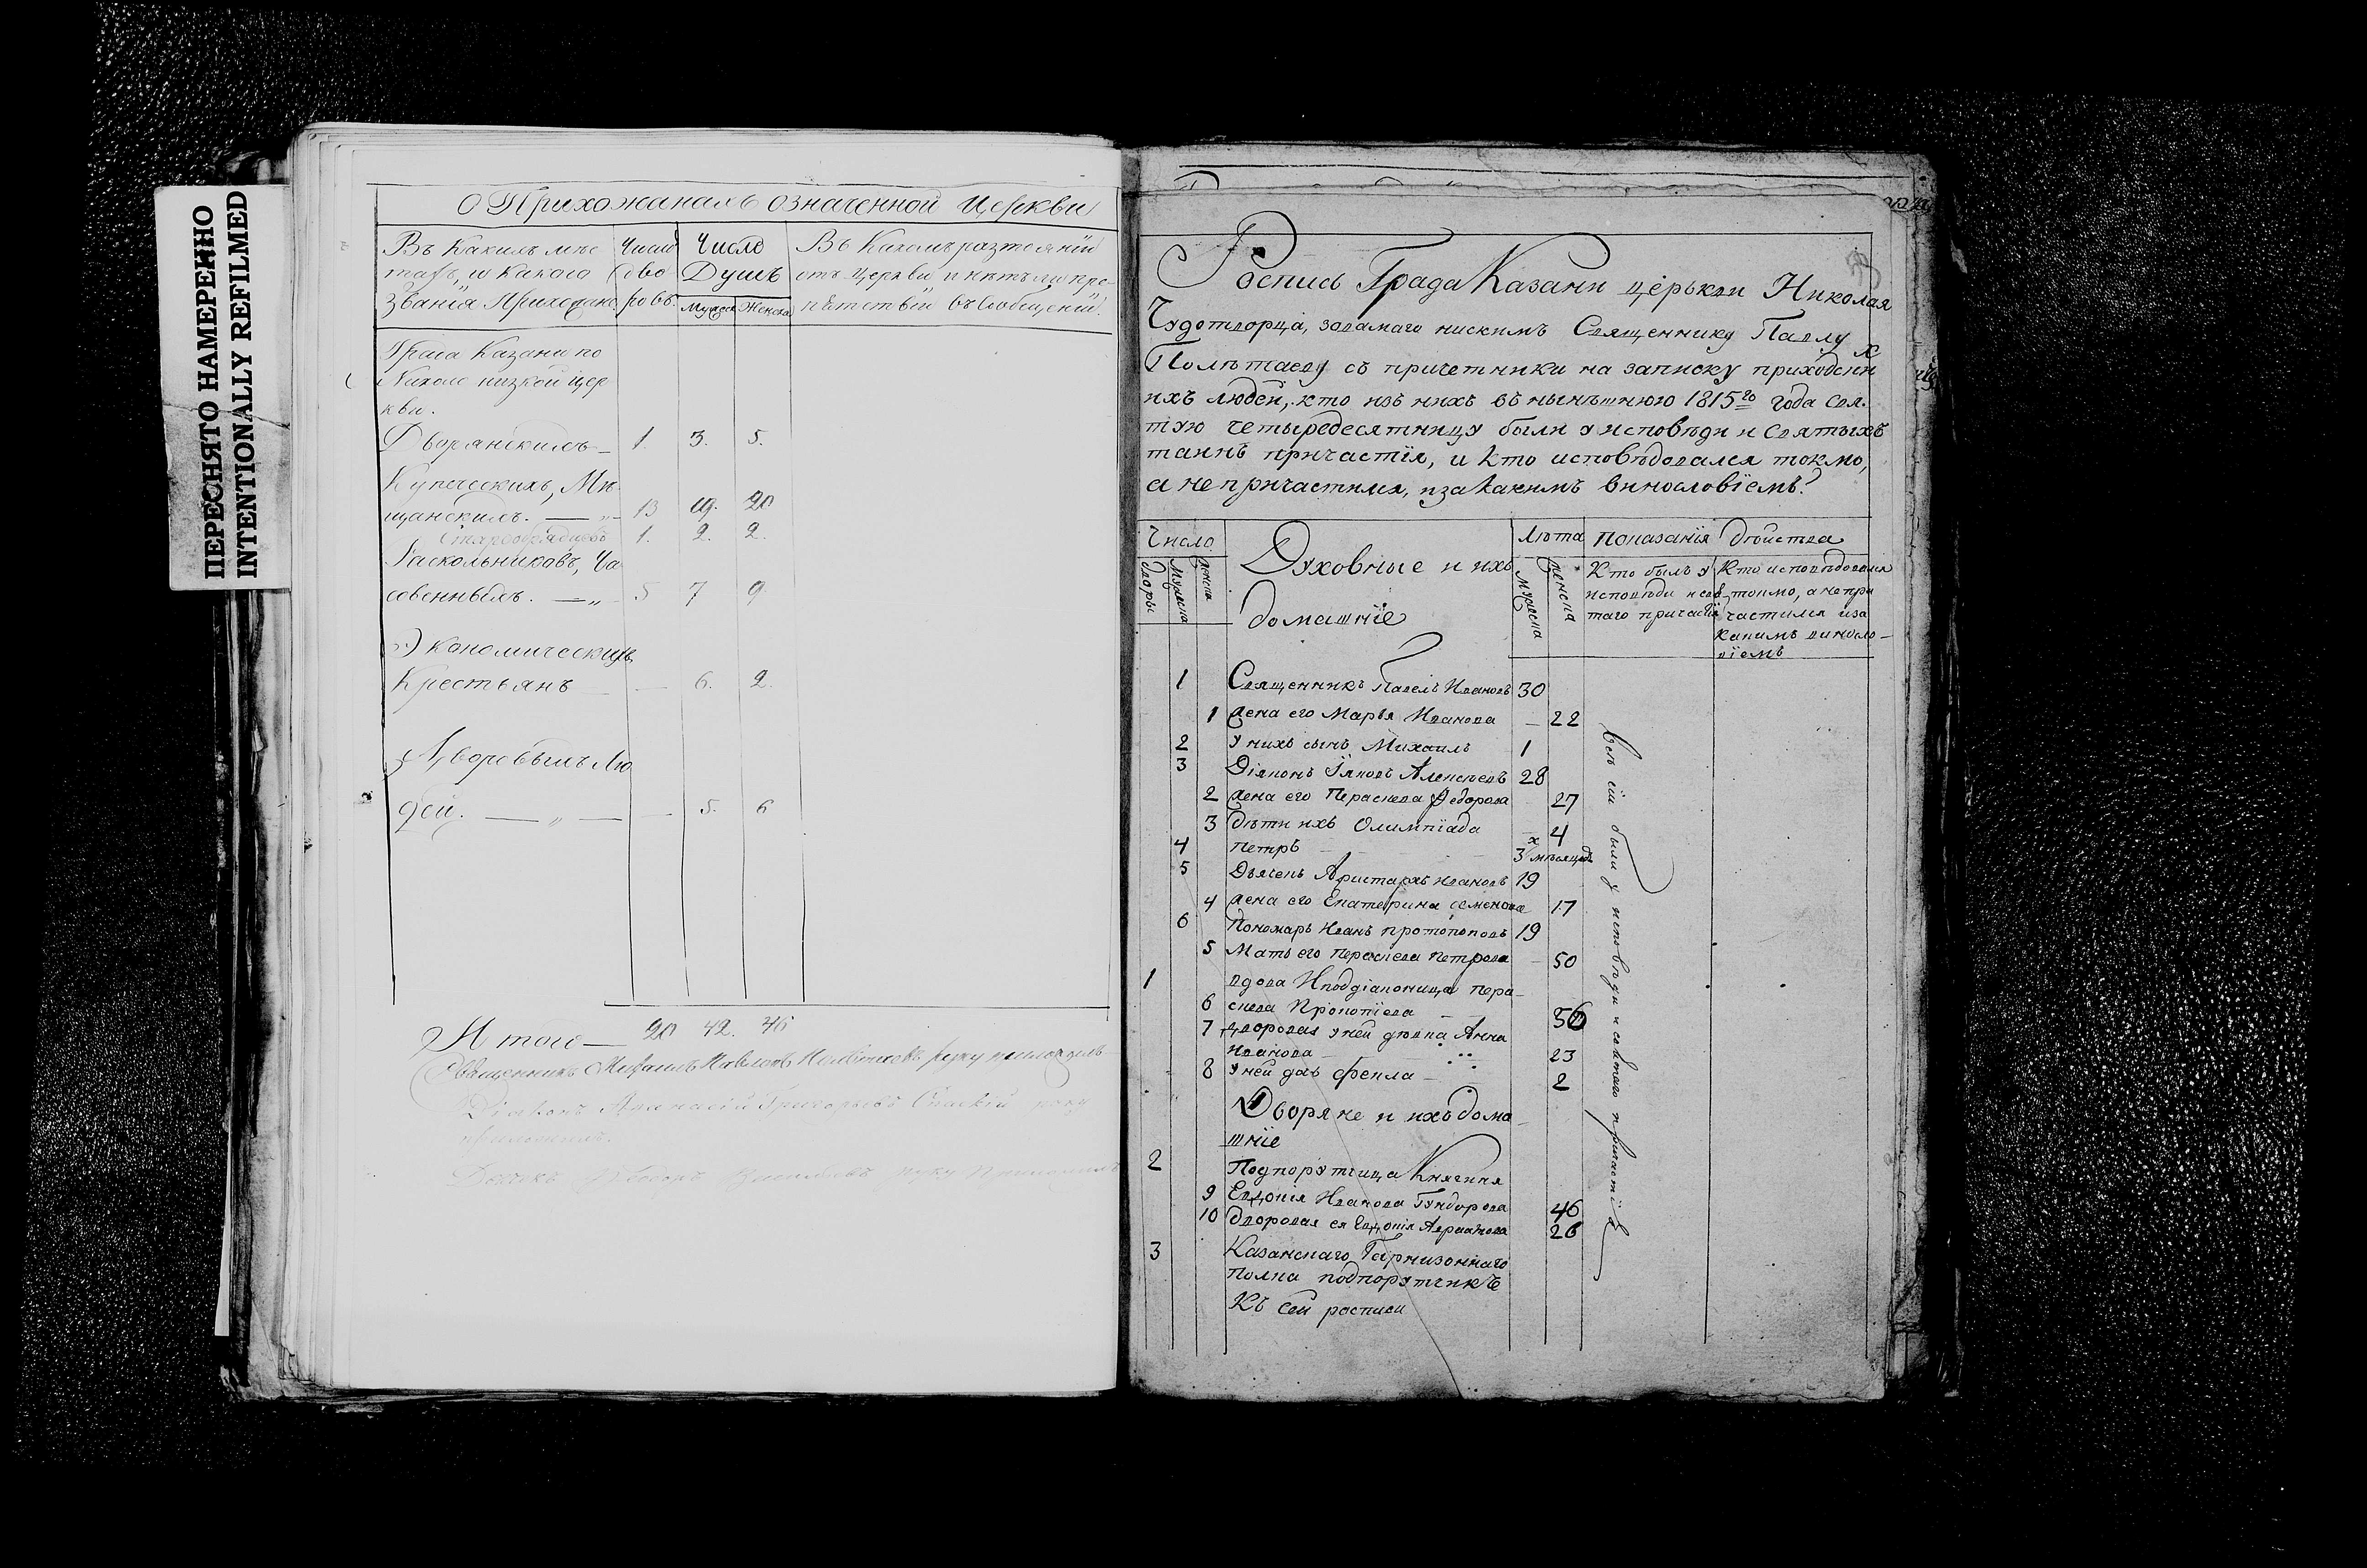 ПЕРЕСНЯТО НАМЕРЕННО
INTENTIONALLY REFILMED
О Прихожанахъ означенной Церкви
Въ Какихъ мѣс
тахъ, и Какого
Званія Прихожане.
Число
дво
ровъ.
Число
Душъ
Мужеск
Женска
Въ Какомъ разтоянїи
отъ Церкви и нѣтъ ли пре
пѣтствїи въ Сообщенїи.
Града Казани по
Николо низкой цер
кви.
Дворянскихъ 1. 3. 5.
Купеческихъ, Мѣ
щанскихъ. 13 19. 20
Старообрядцовъ 1. 2. 2.
Раскольниковъ, Ча
совенныхъ. 5 7 9
Экономическихъ
Крестьянъ — 6. 2.
Дворовыхъ Лю
дей. — 5. 6
Итого 20 42. 46
Священникъ Михаилъ Павловъ руку приложилъ
Дїаконъ Афанасїй Григорьевъ Спаскїй руку
приложилъ.
Дьячекъ Ѳеодоръ Васильевъ руку Приложилъ
Роспись Града Казани церькви Николая
Чудотворца, зовамаго нискимъ Священнику Павлу
Полѣтаеву съ причетники на записку приходски
ихъ людей, кто изъ нихъ въ нынѣшнюю 1815го года свя.
тую четыредесятницу были у исповѣди и Святыхъ
таинъ причастїя, и кто исповѣдовался токмо,
а не причастился, и за какимъ винословїемъ?
Число
Дворы
Мужеска
Женска
Духовные и ихъ
домашнїе
Лѣта
Мужеска
Женска
Показанїя дѣйства
Кто былъ у
исповѣди и свя
таго причастїя
Кто исповѣдовался
токмо, а не при
частился и за
какимъ виносло
вїемъ
1 Священникъ Павелъ Ивановъ 30
1 Жена его Марья Иванова 22
2 У нихъ сынъ Михаилъ 1
3 Дїяконъ Їяковъ Алексѣевъ 28
2 Жена его Параскева Ѳедорова 27
3 дѣти ихъ Олимпїада 4
4 Петръ 3 мѣсяцовъ
5 Дьячекъ Аристархъ Ивановъ 19
4 Жена его Екатерина Семенова 17
6 Пономарь Иванъ Протопоповъ 19
5 Мать его Пераскева Петрова 50
1 вдова Иподдїаконица Пера
6 скева Прокопїева 56
7 Дворовая у ней дѣвка Анна
Иванова 23
8 У ней дчь Фекла 2
Дворяне и ихъ дома
шнїе
2 Подпорутчица Княгиня
9 Евдокїя Иванова Гундорова 46
10 дворовая ея Евдокїя Авраамова 26
3 Казанскаго Гарнизоннаго
Полка подпорутчикъ
Къ сей росписи
Всѣ сїи были у исповѣди и святаго причастїя